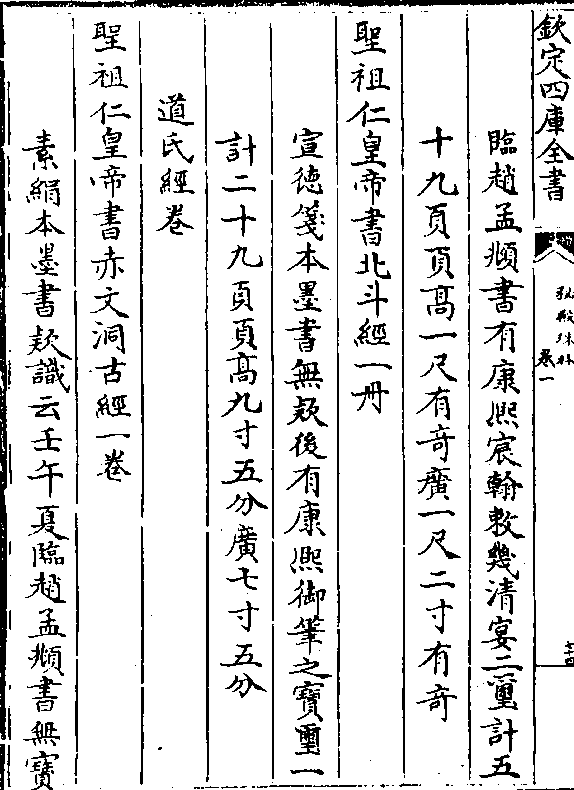 欽定四庫全書
秘殿珠林
卷一
十四
臨趙孟頫書有康熙宸翰敕幾清宴二璽計五
十九頁頁高一尺有奇廣一尺二寸有奇
聖祖仁皇帝書北斗經一冊
宣德箋本墨書無款後有康熙御筆之寶璽一
計二十九頁頁高九寸五分廣七寸五分
道氏經卷
聖祖仁皇帝書赤文洞古經一卷
素絹本墨書款識云壬午夏臨趙孟頫書無寶